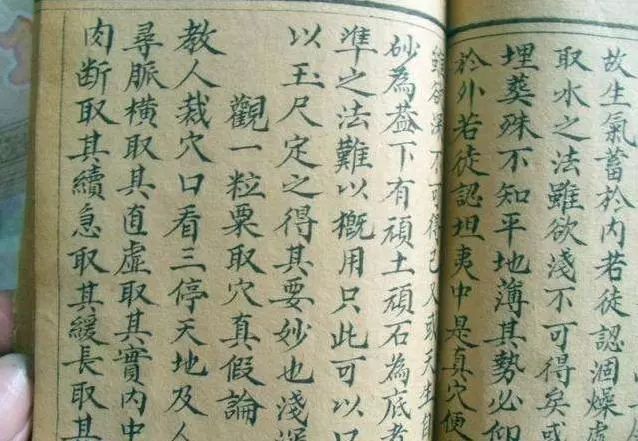 故生氣蓄於內若徒認涸燥處
取水之法雖欲淺不可得矣或
埋葬殊不知平地薄其勢必仰
於外若徒認坦夷中是真穴便
深不可得已又或天生自
砂為蓋下有頑土頑石為底者
準之法難以概用只此可以口
以玉尺定之得其要妙也淺深
觀一粒粟取穴真假論
教人裁穴口看三停天地及人
尋脈橫取其直虛取其實內中
肉断取其續急取其緩長取其